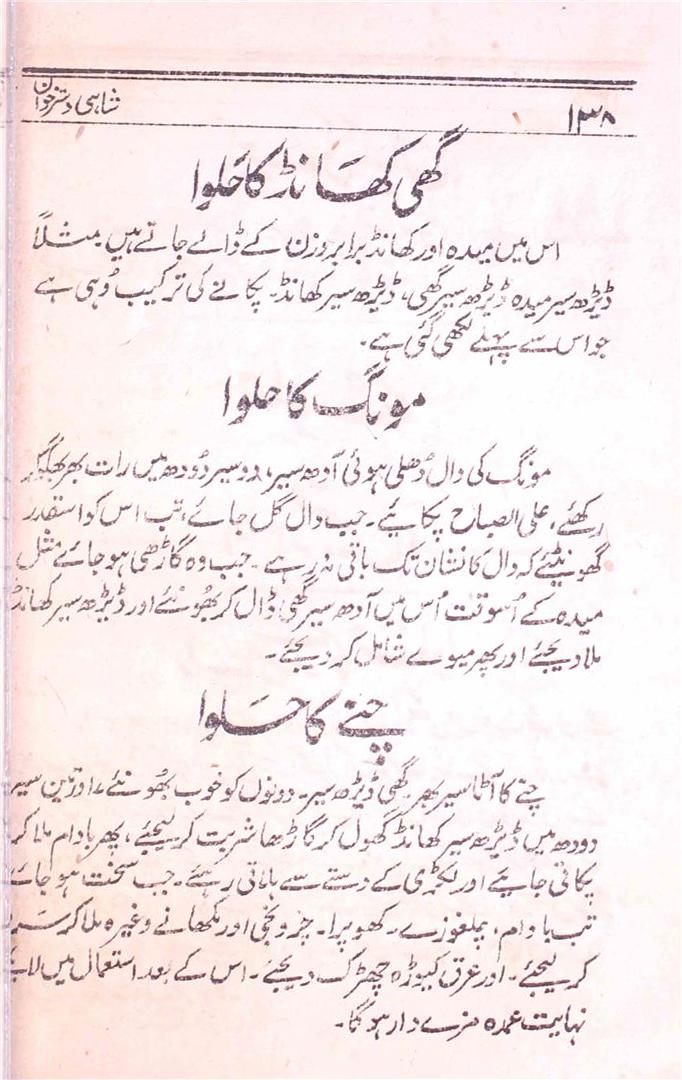 ۱۳۸
شاہی دسترخوان
گھی کھانڈ کا حَلوا
اس میں میدہ اور کھانڈ برابر وزن کے ڈالے جاتے ہیں مثلاً
ڈیڑھ سیر میدہ ڈیڑھ سیر گھی، ڈیڑھ سیر کھانڈ۔ پکانے کی ترکیب وُہی ہے
جو اس سے پہلے لکھی گئی ہے۔
مونگ کا حلوا
مونگ کی دال دُھلی ہوئی آدھ سیر، دو سیر دُودھ میں رات بھر بھگو کر
رکھئے، علی الصباح پکائیے۔ جب دال گل جائے، تب اس کو استقدر
گھونٹیئے کہ دال کا نشان تک باقی نہ رہے۔ جب وہ گاڑھی ہو جائے مثل
میدہ کے اُسوقت اُس میں آدھ سیر گھی ڈال کر بھُونئے اور ڈیڑھ سیر کھانڈ
ملا دیجئے اور پھر میوے شامل کر دیجئے۔
چنے کا حَلوا
چنے کا آٹا سیر بھر، گھی ڈیڑھ سیر۔ دونوں کو خوب بھُونئے، اور تین سیر
دودھ میں ڈیڑھ سیر کھانڈ گھول کر گاڑھا شربت کر لیجئے، پھر بادام ملا کر
پکاتی جایئے اور لکڑی کے دستے سے ہلاتی رہئے۔ جب سخت ہو جائے
تب بادام، چلغوزے۔ کھوپرا۔ چرونجی اور مکھانے وغیرہ ملا کر سَرد
کر لیجئے۔ اور عرق کیوڑہ چھڑک دیجئے۔ اس کے بعد استعمال میں
نہایت عمدہ مزے دار ہو گا۔